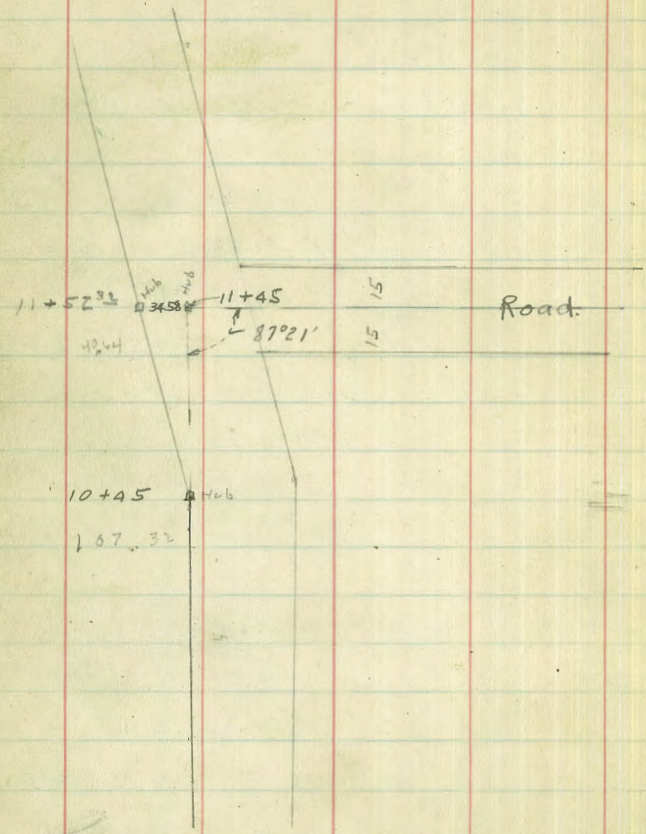 11+52 32 Hub 34.58 Hub 11+45 15 Road.
87°21' 15
40.64
10+45 Hub
107.32